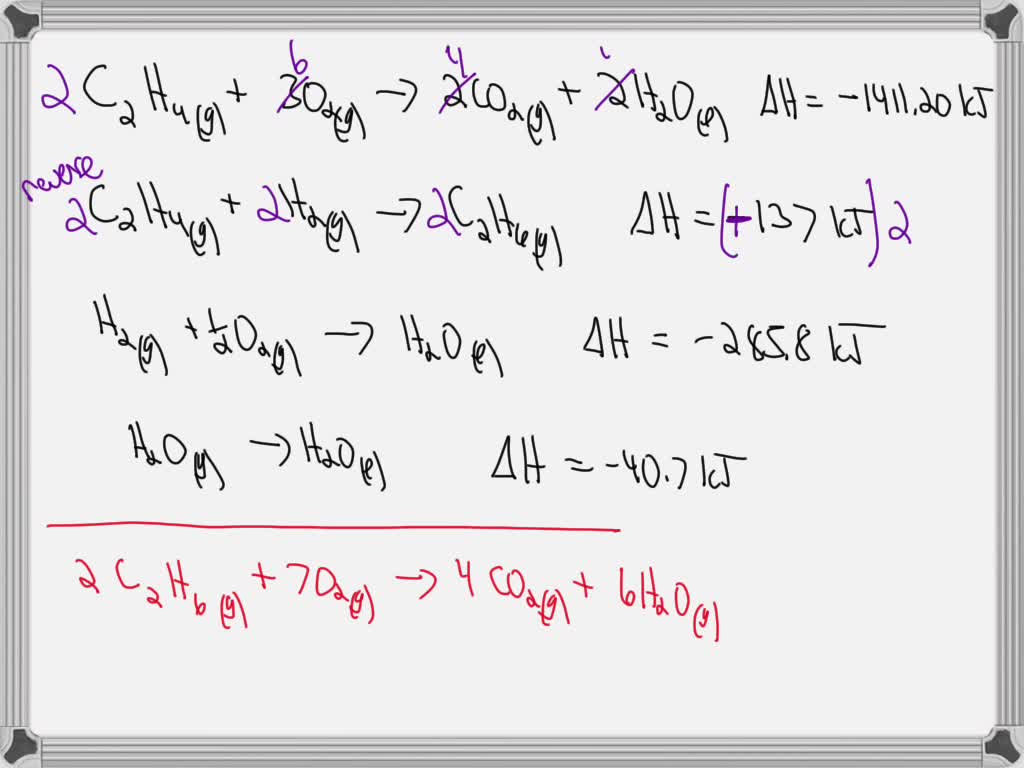 2C₂H₄(g) + 3 6O₂(g) → 2 4CO₂(g) + 2H₂O(ℓ) ΔH = -1411.20 kJ
reverse
2C₂H₄(g) + 2H₂(g) → 2C₂H₆(g) ΔH = (+137 kJ)2
H₂(g) + ½O₂(g) → H₂O(ℓ) ΔH = -285.8 kJ
H₂O(g) → H₂O(ℓ) ΔH = -40.7 kJ
2C₂H₆(g) + 7O₂(g) → 4CO₂(g) + 6H₂O(g)